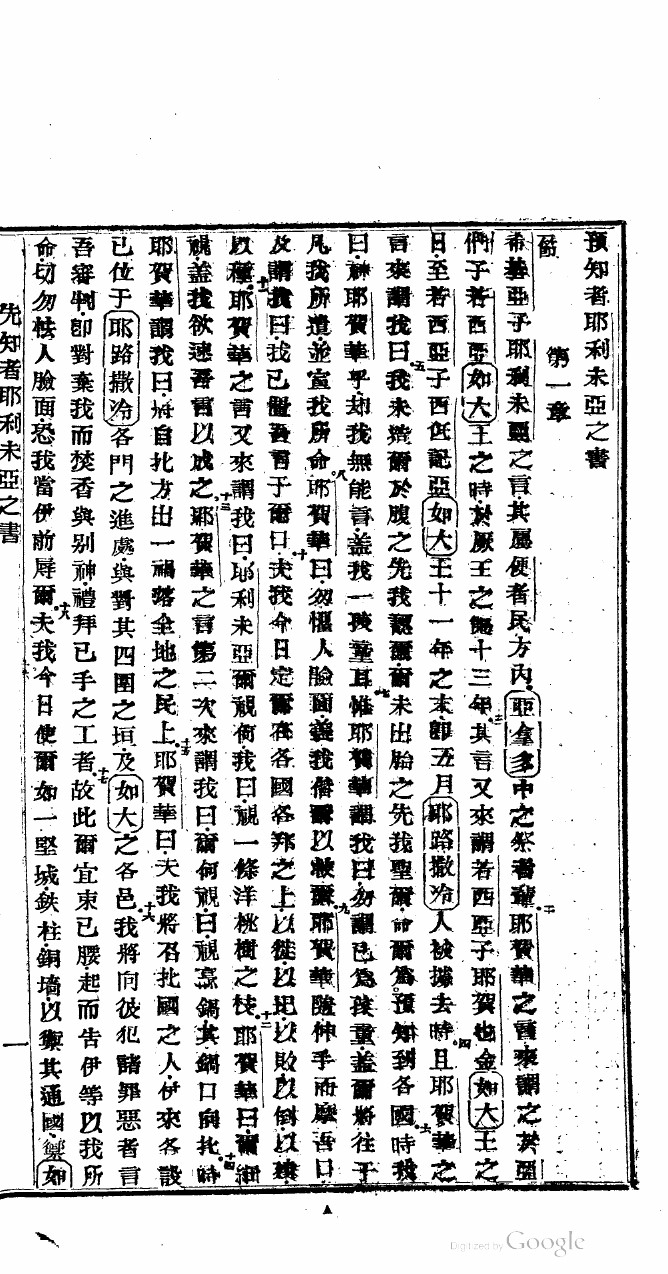 預知者耶利未亞之書
第一章
希基亞子耶利未亞之言其屬便者民方內亞拿多中之祭者輩耶賀華之言來謂之於亞
們子若西亞如大王之時於厥王之第十三年其言又來謂若西亞子耶賀也金如大王之
日至若西亞子西氐記亞如大王十一年之末即五月耶路撒冷人被擄去時且耶賀華之
言來謂我曰我未造爾於腹之先我認爾爾未出胎之先我聖爾命爾為預知到各國時我
曰神耶賀華乎却我無能言蓋我一孩童耳惟耶賀華謂我曰勿謂已為孩童蓋爾將往于
凡我所遣並宣我所命耶賀華曰勿懼人臉面蓋我偕爾以救爾耶賀華隨伸手而摩吾口
及謂我曰我已置吾言于爾口夫我今日定爾在各國各邦之上以從以圯以敗以倒以
以種耶賀華之言又來謂我曰耶利未亞爾視何我曰視一條洋桃樹之枝耶賀華曰爾細
視蓋我欲速吾言以成之耶賀華之言第二次來謂我曰爾何視曰視烹鍋其鍋口向北時
耶賀華謂我曰自北方出一禍落全地之民上耶賀華曰夫我將召北國之人伊來各設
已位于耶路撒冷各門之進處與對其四圍之垣及如大之各邑我將向彼犯諸罪惡者言
吾審判即對棄我而焚香與别神禮拜已手之工者故此爾宜束已腰起而告伊等以我所
命切勿怯人臉面恐我當伊前辱爾夫我今日使爾如一堅城鉄柱銅墻以禦其通國如
先知者耶利未亞之書
一
Digitized by Google